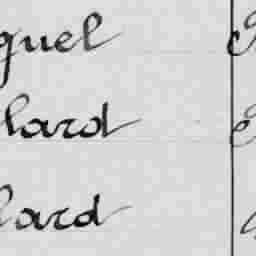 quel
lard
lard